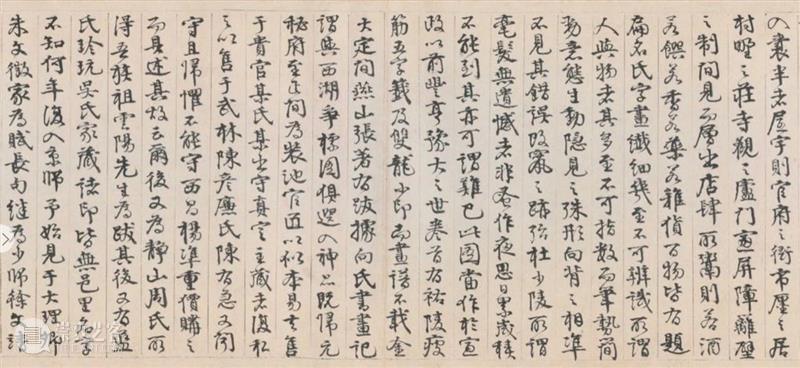 入裏半者屋宇則官府之衙市廛之居
村野之莊寺觀之廬門窗屏障籬壁
之制間見而層出店肆所鬻則若酒
若饌若香若藥若雜貨百物皆有題
扁名氏字畫纖細幾至不可辨識所謂
人與物者其多至不可指數而筆勢簡
勁意態生動隱見之殊形向背之相準
不見其錯誤改竄之跡殆杜少陵所謂
毫髮無遺憾者非蚤作夜思日累歲積
不能到其亦可謂難已此圖當作於宣
政以前豐亨豫大之世卷首有祐陵瘦
筋五字籤及雙龍小印而畫譜不載金
大定間燕山張著有跋據向氏書畫記
謂與西湖爭標圖俱選入神品既歸元
秘府至正間為裝池官匠以似本易去售
于貴官某氏某出守真定主藏者復私
之以售于武林陳彥廉氏陳有急又聞
守且歸懼不能守西昌楊準重價購之
而具述其故云爾後又為靜山周氏所
得吾族祖雲陽先生為跋其後又有藍
氏珍玩吳氏家藏諸印皆無邑里名字
不知何年復入京師予始見于大理卿
朱文徵家為賦長句繼為少師徐文靖